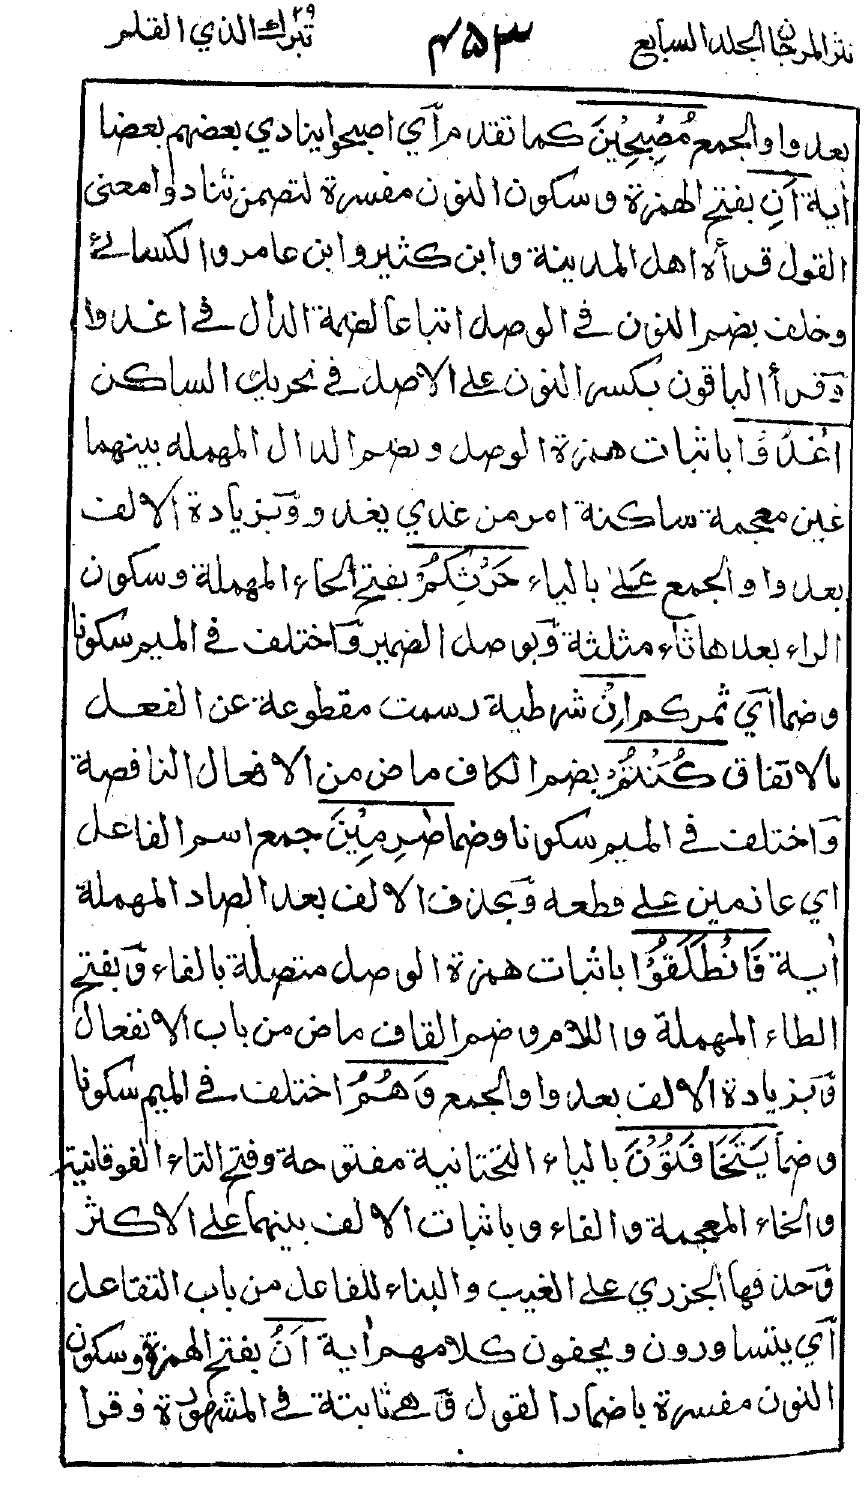 نثر المرجان الجلد السابع ۴۵۳ تبرك الذي ۲۹ القلم
بعد واو الجمع مُصْبِحِيْنَ كما تقدم آي اصبحوا ينادي بعضهم بعضا
أية أَنِ بفتح الهمزة وسكون النون مفسرة لتضمن تنادوا معنى
القول قرأه اهل المدينة وابن كثير وابن عامر والكسائي
وخلف بضم النون في الوصل اتباعا لضمة الدال في اغدوا
وقرأ الباقون بكسر النون على الاصل في تحريك الساكن
اُغْدُوْا باثبات همزة الوصل وبضم الدال المهملة بينهما
غين معجمة ساكنة امر من غدي يغدو وبزيادة الالف
بعد واو الجمع عَلٰى بالياء حَرْثِكُمْ بفتح الحاء المهملة وسكون
الراء بعدها ثاء مثلثة وبوصل الضمير واختلف في الميم سكونا
وضما آي ثمركم اِنْ شرطية رسمت مقطوعة عن الفعل
بالاتفاق كُنْتُمْ بضم الكاف ماض من الافعال الناقصة
واختلف في الميم سكونا وضما صٰرِمِيْنَ جمع اسم الفاعل
اي عازمين على قطعه وبحذف الالف بعد الصاد المهملة
أية فَانْطَلَقُوْا باثبات همزة الوصل متصلة بالفاء وبفتح
الطاء المهملة واللام وضم القاف ماض من باب الانفعال
وبزيادة الالف بعد واو الجمع وَهُمْ اختلف في الميم سكونا
وضما يَتَخَافَتُوْنَ بالياء التحتانية مفتوحة وفتح التاء الفوقانية
والخاء المعجمة والفاء وباثبات الالف بينهما على الاكثر
وحذفها الجزري على الغيب والبناء للفاعل من باب التفاعل
آي يتساورون ويخفون كلامهم أية اَنْ بفتح الهمزة وسكون
النون مفسرة باضمار القول وهي ثابتة في المشهورة وقرا